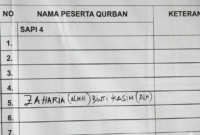 NO NAMA PESERTA QURBAN KETERAN
SAPI 4
1.
2.
3.
4.
5. ZAHARIA (ALMH) BINTI KASIM (ALM)
6.
7.